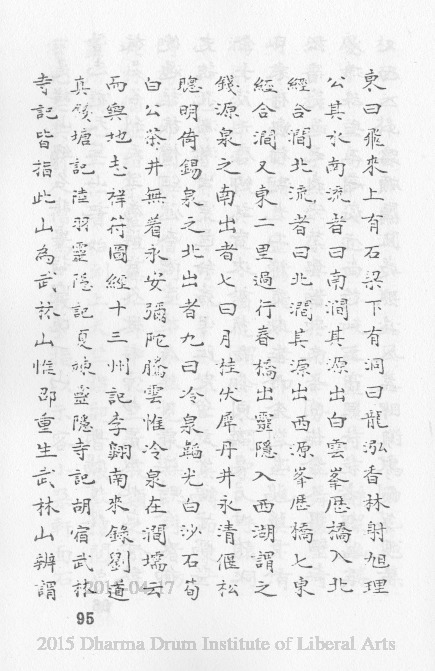 東曰飛來上有石梁下有洞曰龍泓香林射旭理
公其水南流者曰南澗其源出白雲峯歷橋入北
經合澗北流者曰北澗其源出西源峯歷橋七東
經合澗又東二里過行春橋出靈隱入西湖謂之
錢源泉之南出者七曰月桂伏犀丹井永清偃松
聰明倚錫泉之北出者九曰冷泉韜光白沙石笋
白公茶井無着永安彌陀騰雲惟冷泉在澗壖云
而輿地志祥符圖經十三州記李翱南來錄劉道
真錢塘記陸羽靈隱記夏竦靈隱寺記胡宿武林
寺記皆指此山為武林山惟邵重生武林山辨謂
95
2015 Dharma Drum Institute of Liberal Arts